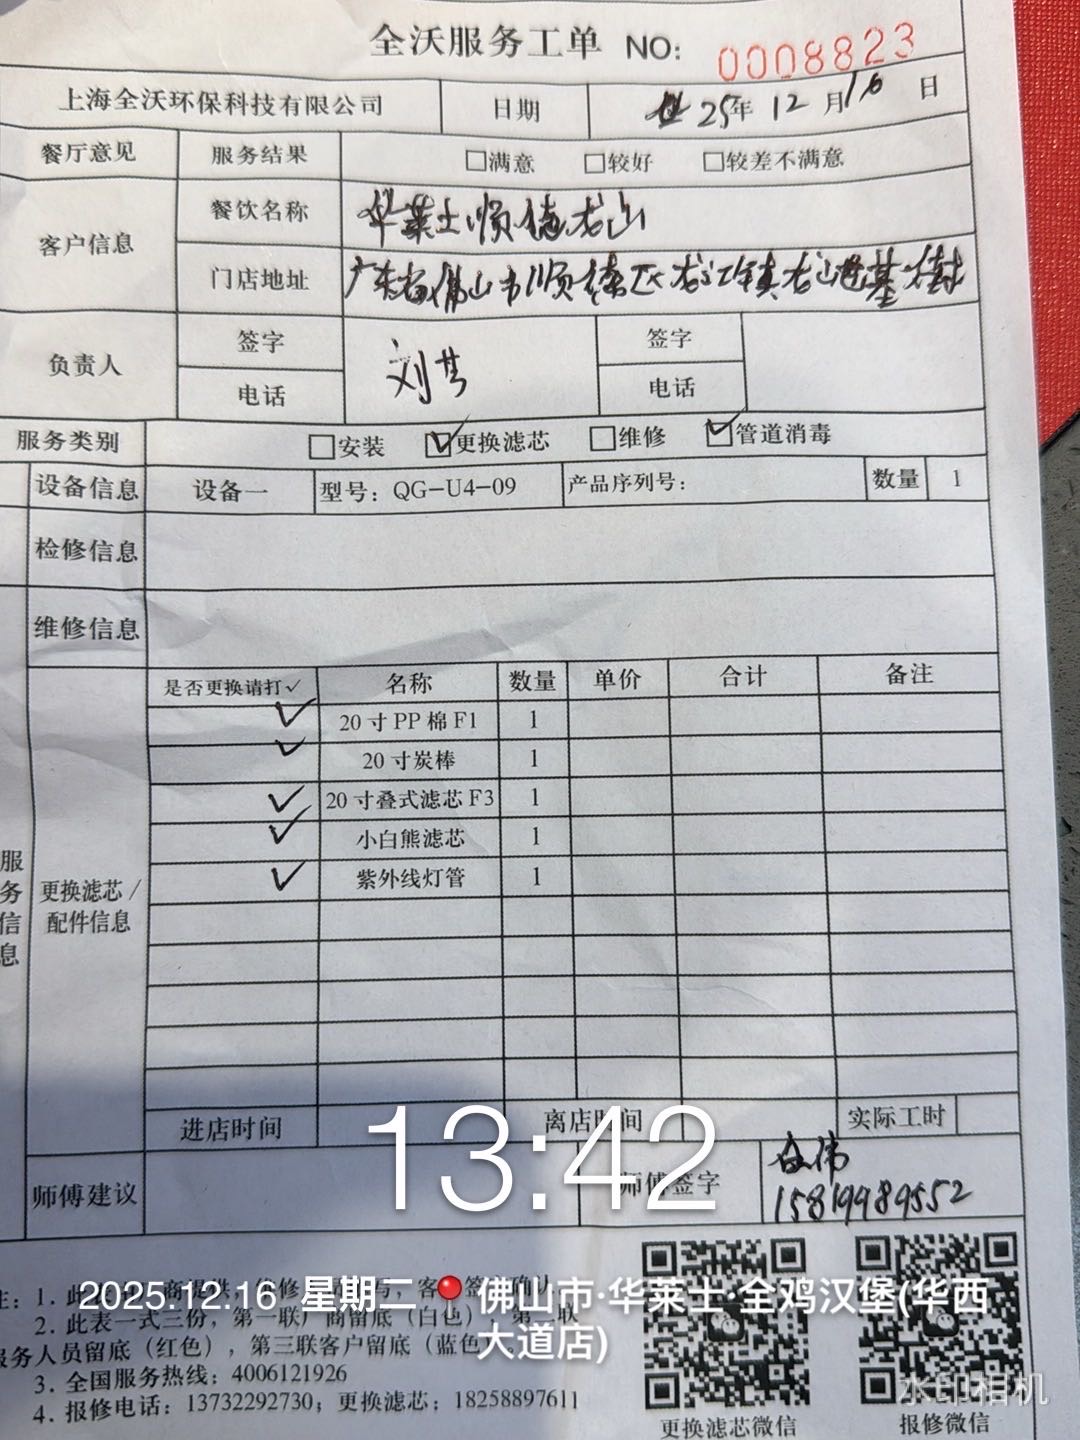 全沃服务工单 NO: 0008823
上海全沃环保科技有限公司 日期 25年 12月16日
餐厅意见 服务结果 □满意 □较好 □较差不满意
客户信息 餐饮名称 华莱士顺德右山
门店地址 广东省佛山市顺德区
负责人 签字 刘 签字
电话 电话
服务类别 □安装 ☑更换滤芯 □维修 ☑管道消毒
设备信息 设备一 型号：QG-U4-09 产品序列号： 数量 1
检修信息
维修信息
是否更换请打✓ 名称 数量 单价 合计 备注
✓ 20寸PP棉F1 1
✓ 20寸炭棒 1
✓ 20寸叠式滤芯F3 1
✓ 小白熊滤芯 1
✓ 紫外线灯管 1
服务信息
更换滤芯/
配件信息
进店时间 离店时间 实际工时
13:42
师傅建议 师傅签字 伟
15819989552
2025.12.16 星期二 佛山市·华莱士·全鸡汉堡(华西
大道店)
2. 此表一式三份，第一联厂商留底（白色），第二联
服务人员留底（红色），第三联客户留底（蓝色
3. 全国服务热线：4006121926
4. 报修电话：13732292730；更换滤芯：18258897611
更换滤芯微信 报修微信
水印相机